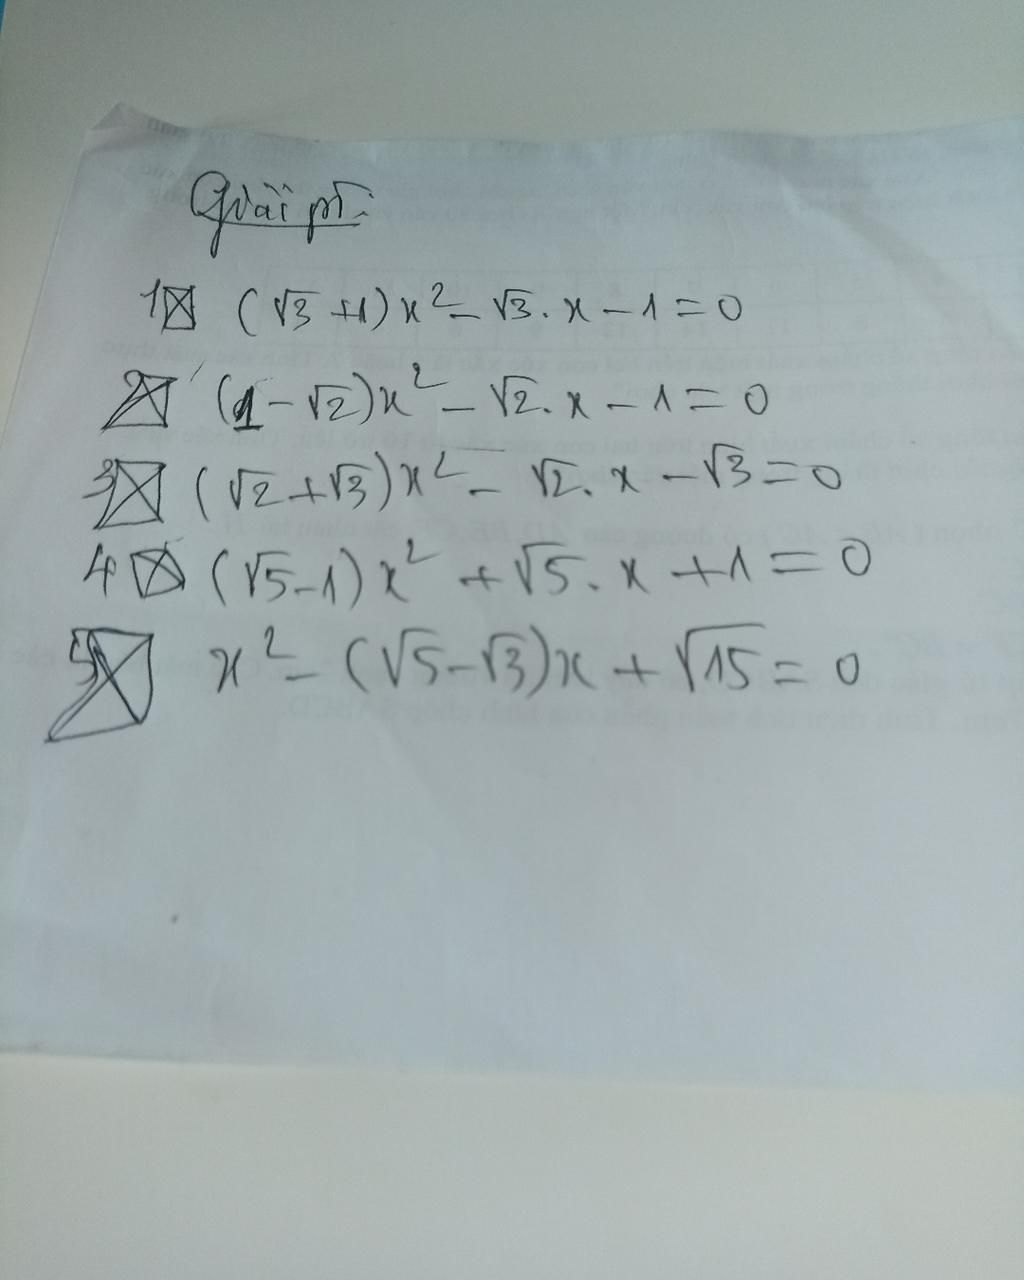 Giải pt:
1 (√3 + 1)x² - √3. x - 1 = 0
2 (1 - √2)x² - √2. x - 1 = 0
3 (√2 + √3)x² - √2. x - √3 = 0
4 (√5 - 1)x² + √5. x + 1 = 0
5 x² - (√5 - √3)x + √15 = 0